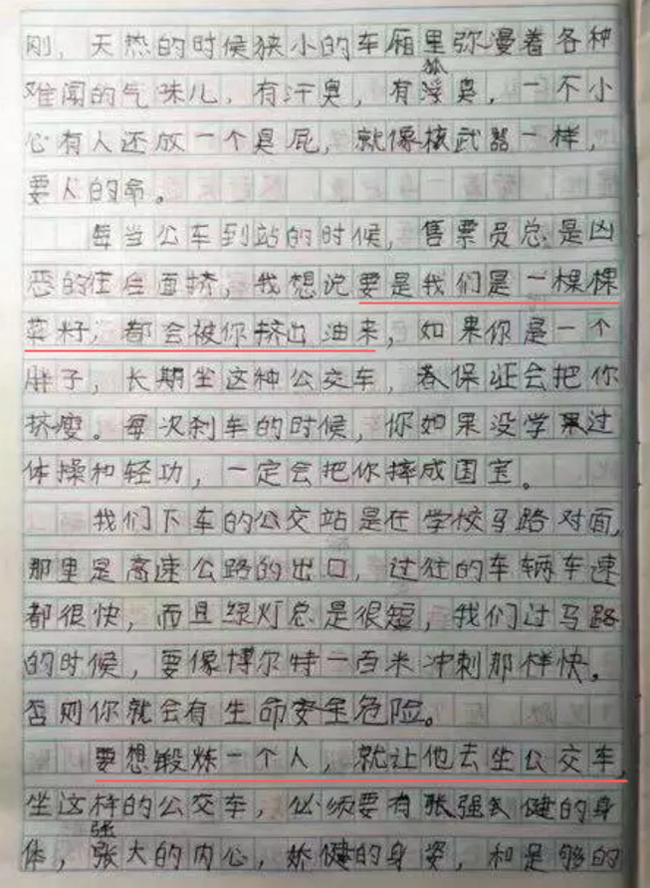 刚，天热的时候狭小的车厢里弥漫着各种
难闻的气味儿，有汗臭，有狐臭，一不小
心有人还放一个臭屁，就像核武器一样，
要人的命。
每当公车到站的时候，售票员总是凶
恶的往后面挤，我想说要是我们是一棵棵
菜籽，都会被你挤出油来，如果你是一个
胖子，长期坐这种公交车，春保证会把你
挤瘦。每次刹车的时候，你如果没学果过
体操和轻功，一定会把你摔成国宝。
我们下车的公交站是在学校马路对面，
那里是高速公路的出口，过往的车辆车速
都很快，而且绿灯总是很短，我们过马路
的时候，要像博尔特一百米冲刺那样快。
否则你就会有生命安全危险。
要想锻炼一个人，就让他去坐公交车，
坐这样的公交车，必须要有张强健的身
体，强大的内心，娇健的身姿，和足够的